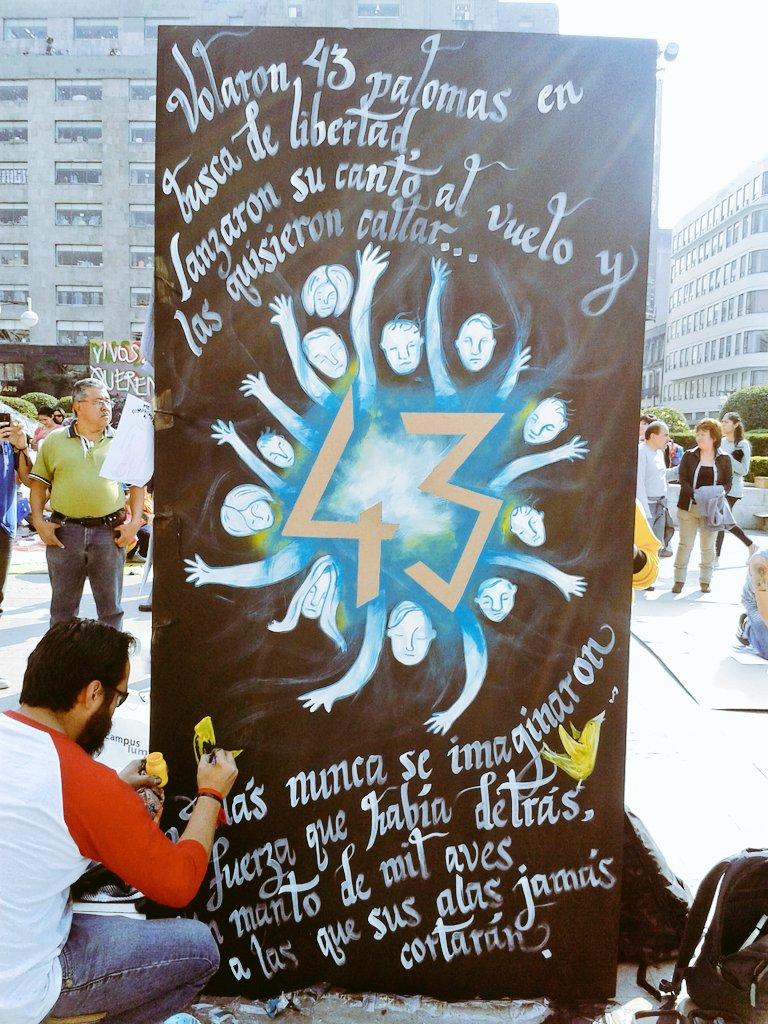 Volaron 43 palomas en
busca de libertad,
lanzaron su canto al vuelo y
las quisieron callar...
VIVOS
QUEREN
43
más nunca se imaginaron
fuerza que había detrás,
manto de mil aves
a las que sus alas jamás
cortarán.
campus